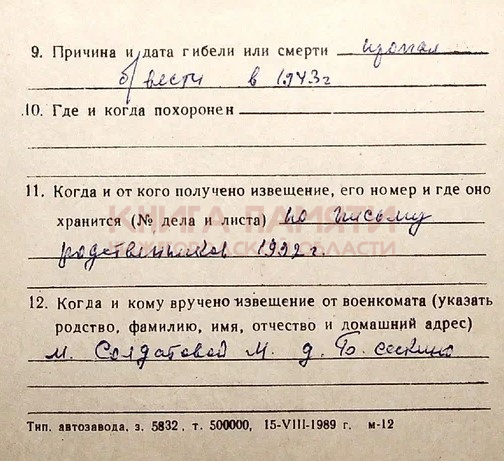 9. Причина и дата гибели или смерти пропал
б/вести в 1943г
10. Где и когда похоронен
11. Когда и от кого получено извещение, его номер и где оно
хранится (№ дела и листа) по письму
КНИГА ПАМЯТИ
НИЖЕГОРОДСКОЙ ОБЛАСТИ
родственников 1992г.
12. Когда и кому вручено извещение от военкомата (указать
родство, фамилию, имя, отчество и домашний адрес)
м. Солдатовой М. д. Б.
Тип. автозавода, з. 5832, т. 500000, 15-VIII-1989 г. м-12